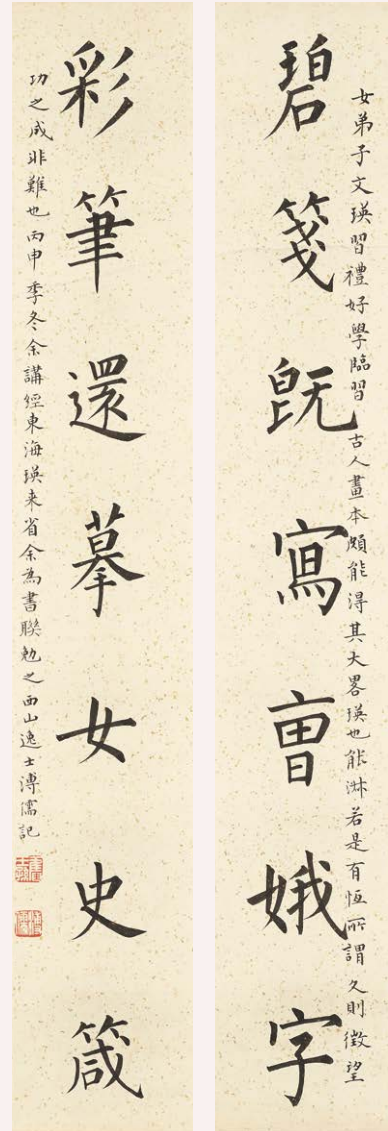 女弟子文瑛習禮好學臨習古人畫本頗能得其大畧瑛也能淋若是有恆所謂久則徵望
碧箋旣寫曺娥字
彩筆還摹女史箴
功之成非難也丙申季冬余講經東海瑛来省余為書聯勉之西山逸士溥儒記